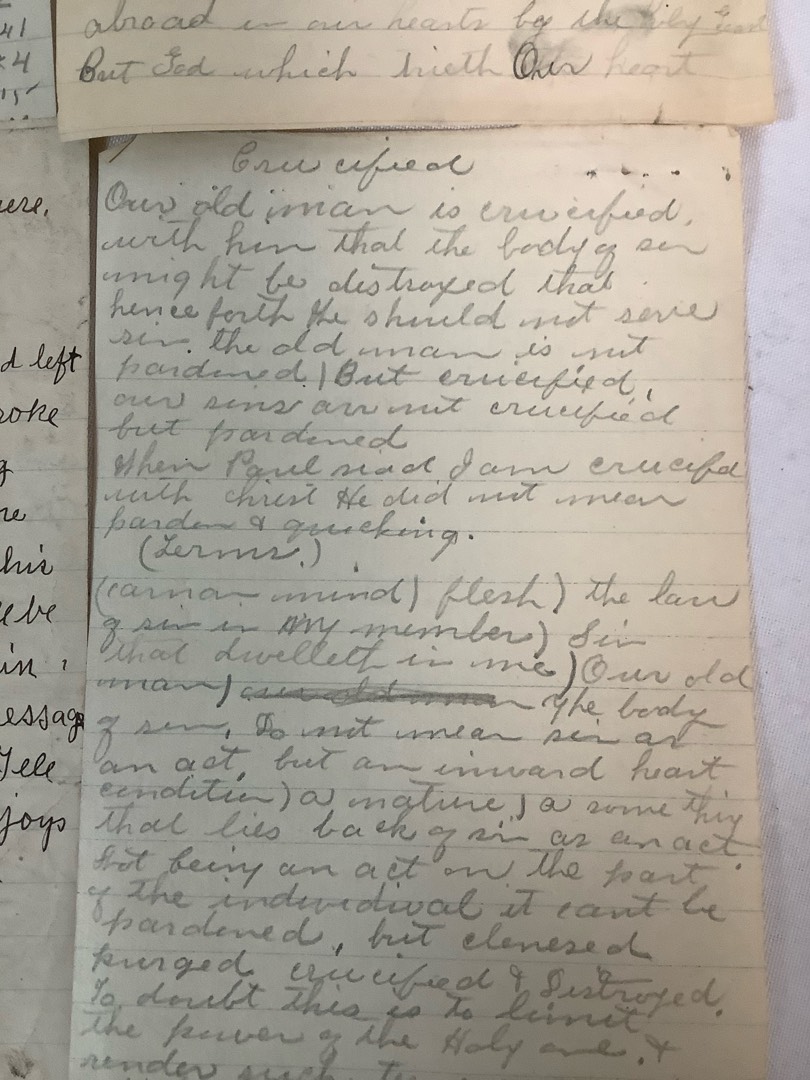 41
*4
15
abroad in our hearts by the Holy
But God which trieth Our heart
ere,
d left
roke
g
re
his
be
in
essage
Tell
joys
Crucified
Our old man is crucified,
with him that the body of sin
might be distroyed that
hence forth He should not serve
sin. the old man is not
pardined. | But crucified,
our sins are not crucified
but pardined
When Paul siad I am crucifed
with christ He did not mean
pardon & quicking.
(Terms.)
(carnan mind) flesh) the law
of sin in My member) Sin
that dwelleth in me) Our old
man) our old man The body
of sin. Do not mean sin as
an act, but an inward heart
condition) a nature) a some thing
that lies back of sin as an act.
Not being an act on the part
of the individival it cant be
pardined, but clenesed
purged. crucified & Distroyed.
To doubt this is to limit
the power of the Holy one. &
render such